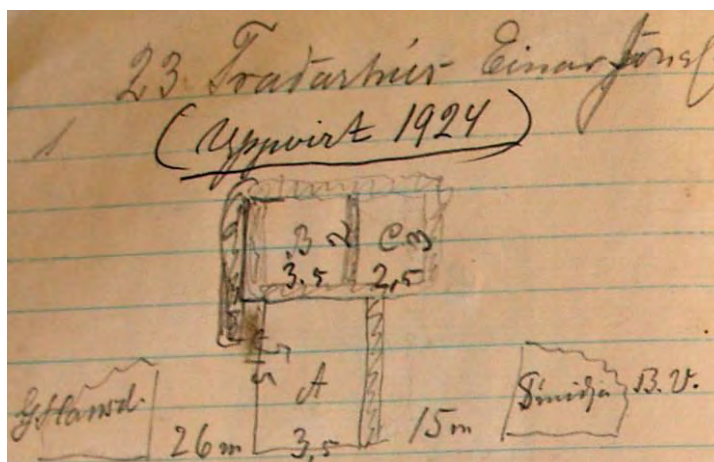 23 Traðarhús Einar Jóns
(Uppvirt 1924)
B 2 C 3
3.5 2,5
5,5
A
G. Hansd. 26 m 3,5 15 m Smiðja B.V.